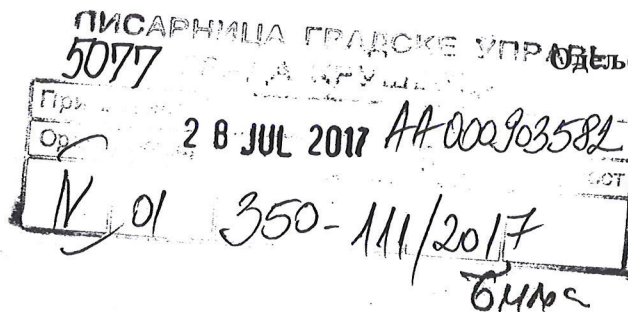 ПИСАРНИЦА ГРАДСКЕ УПРАВЕ Одељ
5077
При
Ор 28 JUL 2017 AA 000903582
IV 01 350-111/2017